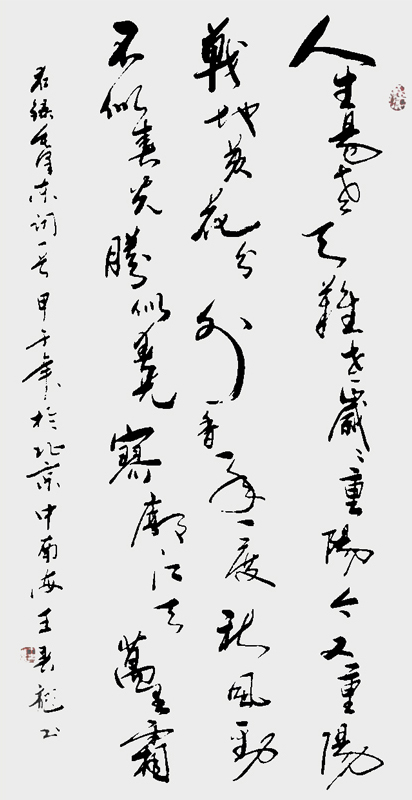 人生易老天難老歲〻重陽今又重陽
戰地黃花分外香一年一度秋風勁
不似春光勝似春光寥廓江天萬里霜
右錄毛澤東詞一首甲子年於北京中南海王春書